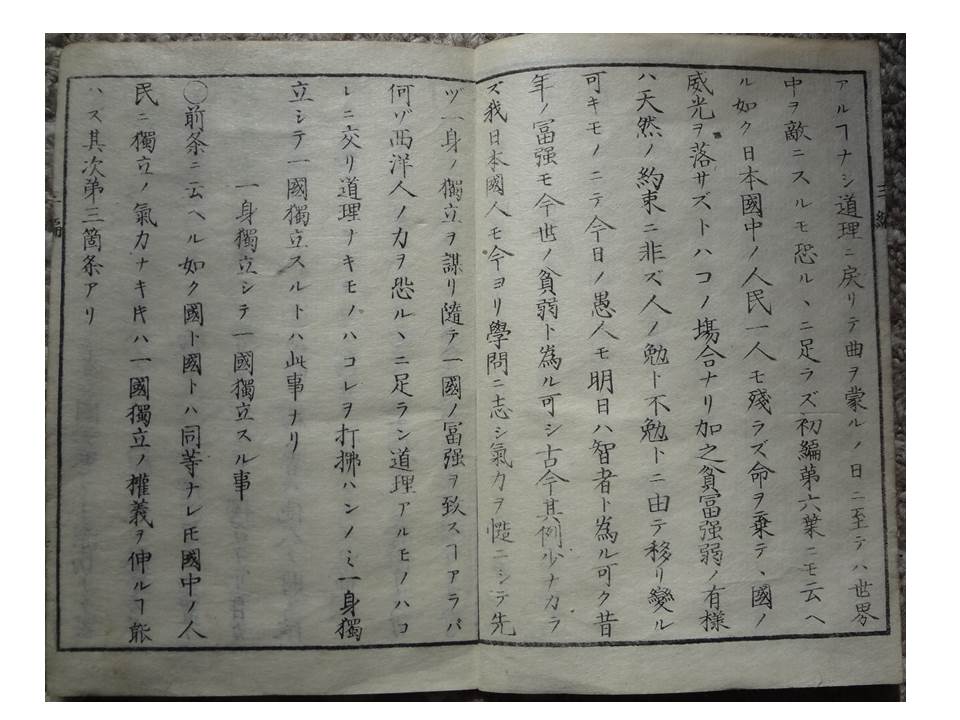 アルヿナシ道理ニ戻リテ曲ヲ蒙ルノ日ニ至テハ世界
中ヲ敵ニスルモ恐ルヽニ足ラズ初編第六葉ニモ云ヘ
ル如ク日本國中ノ人民一人モ殘ラズ命ヲ棄テヽ國ノ
威光ヲ落サズトハコノ塲合ナリ加之貧富强弱ノ有樣
ハ天然ノ約束ニ非ズ人ノ勉ト不勉トニ由テ移リ變ル
可キモノニテ今日ノ愚人モ明日ハ智者ト為ル可ク昔
年ノ冨强モ今世ノ貧弱ト為ル可シ古今其例少ナカラ
ズ我日本國人モ今ヨリ學問ニ志シ氣力ヲ慥ニシテ先
ヅ一身ノ獨立ヲ謀リ隨テ一國ノ冨强ヲ致スヿアラバ
何ゾ西洋人ノ力ヲ恐ルヽニ足ラン道理アルモノハコ
レニ交リ道理ナキモノハコレヲ打拂ハンノミ一身獨
立シテ一國獨立スルトハ此事ナリ
一身獨立シテ一國獨立スル事
〇前条ニ云ヘル如ク國ト國トハ同等ナレ𪜈國中ノ人
民ニ獨立ノ氣力ナキ𪜈ハ一國獨立ノ權義ヲ伸ルヿ能
ハズ其次第三箇条アリ
三編